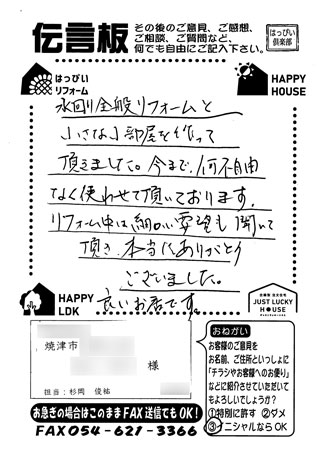 伝言板
その後のご意見、ご感想、
ご相談、ご質問など、
何でも自由にご記入下さい。
はっぴい
倶楽部
はっぴい
リフォーム
HAPPY
HOUSE
水回り全般リフォームと
小さな小部屋を作って
頂きました。今まで、何不自由
なく使わせて頂いております。
リフォーム中は細かい要望も聞いて
頂き、本当にありがとう
ございました。
良いお店です。
HAPPY
LDK
JUST LUCKY
HOUSE
焼津市
様
担当:杉岡 俊祐
おねがい
お客様のご意見を
お名前、ご住所といっしょに
「チラシやお客様へのお便り」
などに紹介させていただいて
もよろしいでしょうか?
①特別に許す ②ダメ
③イニシャルならOK
お急ぎの場合はこのままFAX送信でもOK!
FAX054-627-3366